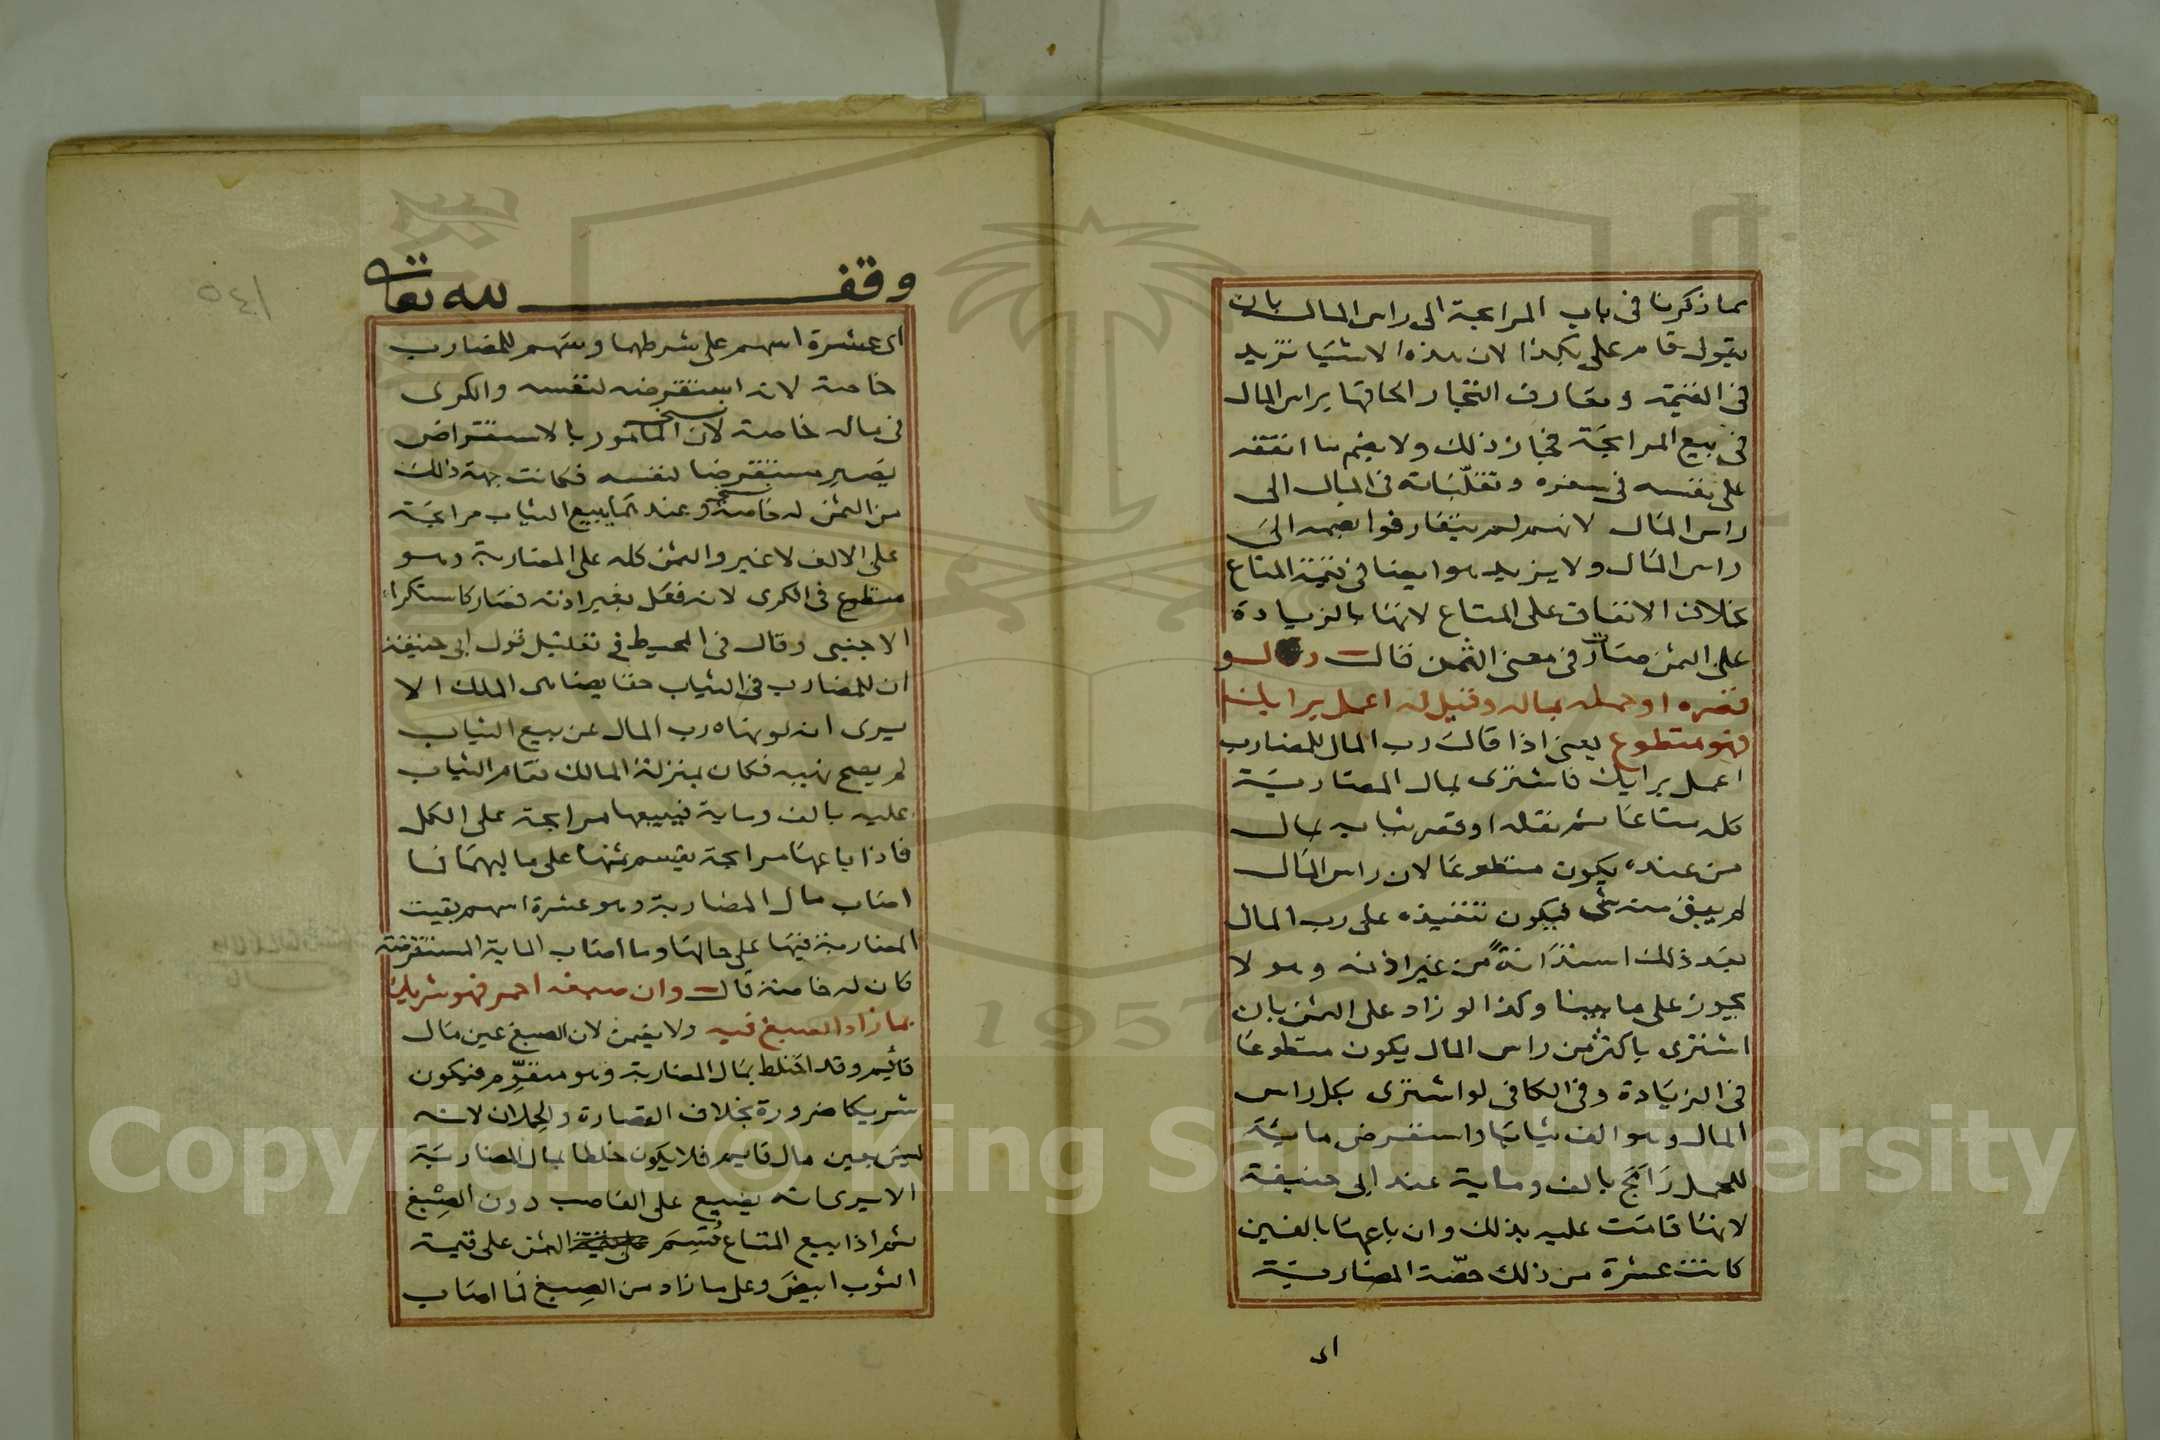 بما ذكرنا في باب المرابحة الى راس المال بان
يقول قام علي بكذا لان هذه الاشيا تزيد
في القيمة وتعارف التجار الحاقها براس المال
في بيع المرابحة فجاز ذلك ولا يضم ما انفقه
على نفسه في سفره وتقلباته في المال الى
راس المال لانهم لم يتعارفوا ضمه الى
راس المال ولا يزيد هو ايضا في قيمة المتاع
بخلاف الانفاق على المتاع لانها بالزيادة
على الثمن صارت في معنى الثمن قال ولو
قصره او حمله بماله وقيل له اعمل برايك
فهو متطوع يعني اذا قال رب المال للمضارب
اعمل برايك فاشترى بمال المضاربة
كله متاعا ثم نقله او قصر ثيابه بمال
من عنده يكون متطوعا لان راس المال
لم يبق منه شي فيكون تنفيذه على رب المال
بعد ذلك استدانة من غير اذنه وهو لا
يجوز على ما بينا وكذا لو زاد على الثمن بان
اشترى باكثر من راس المال يكون متطوعا
في الزيادة وفي الكافي لو اشترى بكل راس
المال وهو الف ثيابا واستقرض مائة
للحمل رابح بالف وماية عند ابي حنيفة
لانها قامت عليه بذلك وان باعها بالفين
كانت عشرة من ذلك حصة المضاربة
اى
وقف لله تعالى
١٤٥
اى عشرة اسهم على شرطهما وسهم للمضارب
خاصة لانه استقرضه لنفسه والكرى
في ماله خاصة لان المامور بالاستقراض
يصير مستقرضا لنفسه فكانت جهة ذلك
من الثمن له خاصة وعندهما يبيع الثياب مرابحة
على الالف لا غير والثمن كله على المضاربة وهو
متطوع في الكرى لانه فعل بغير اذنه فصار كاستكراء
الاجنبي وقال في المحيط في تعليل قول ابي حنيفة
ان للمضارب في الثياب حقا يضاهى الملك الا
يرى انه لو نهاه رب المال عن بيع الثياب
لم يصح نهيه فكان بمنزلة المالك فقام الثياب
عليه بالف وماية فيبيعها مرابحة على الكل
فاذا باعها مرابحة يقسم ثمنها على ماليهما فما
اصاب مال المضاربة وهو عشرة اسهم بقيت
المضاربة فيها على حالها وما اصاب الماية المستقرضة
كان له خاصة قال وان صبغه احمر فهو شريك
بما زاد الصبغ فيه ولا يضمن لان الصبغ عين مال
قائم وقد اختلط بمال المضاربة وهو متقوم فيكون
شريكا ضرورة بخلاف القصارة والحملان لانه
ليس بعين مال قايم فلا يكون خلطا بمال المضاربة
الا يرى انه يضيع على الغاصب دون الصبغ
ثم اذا بيع المتاع قسم الثمن على قيمة
الثوب ابيض وعلى ما زاد من الصبغ فما اصاب
Copyright © King Saud University
1957